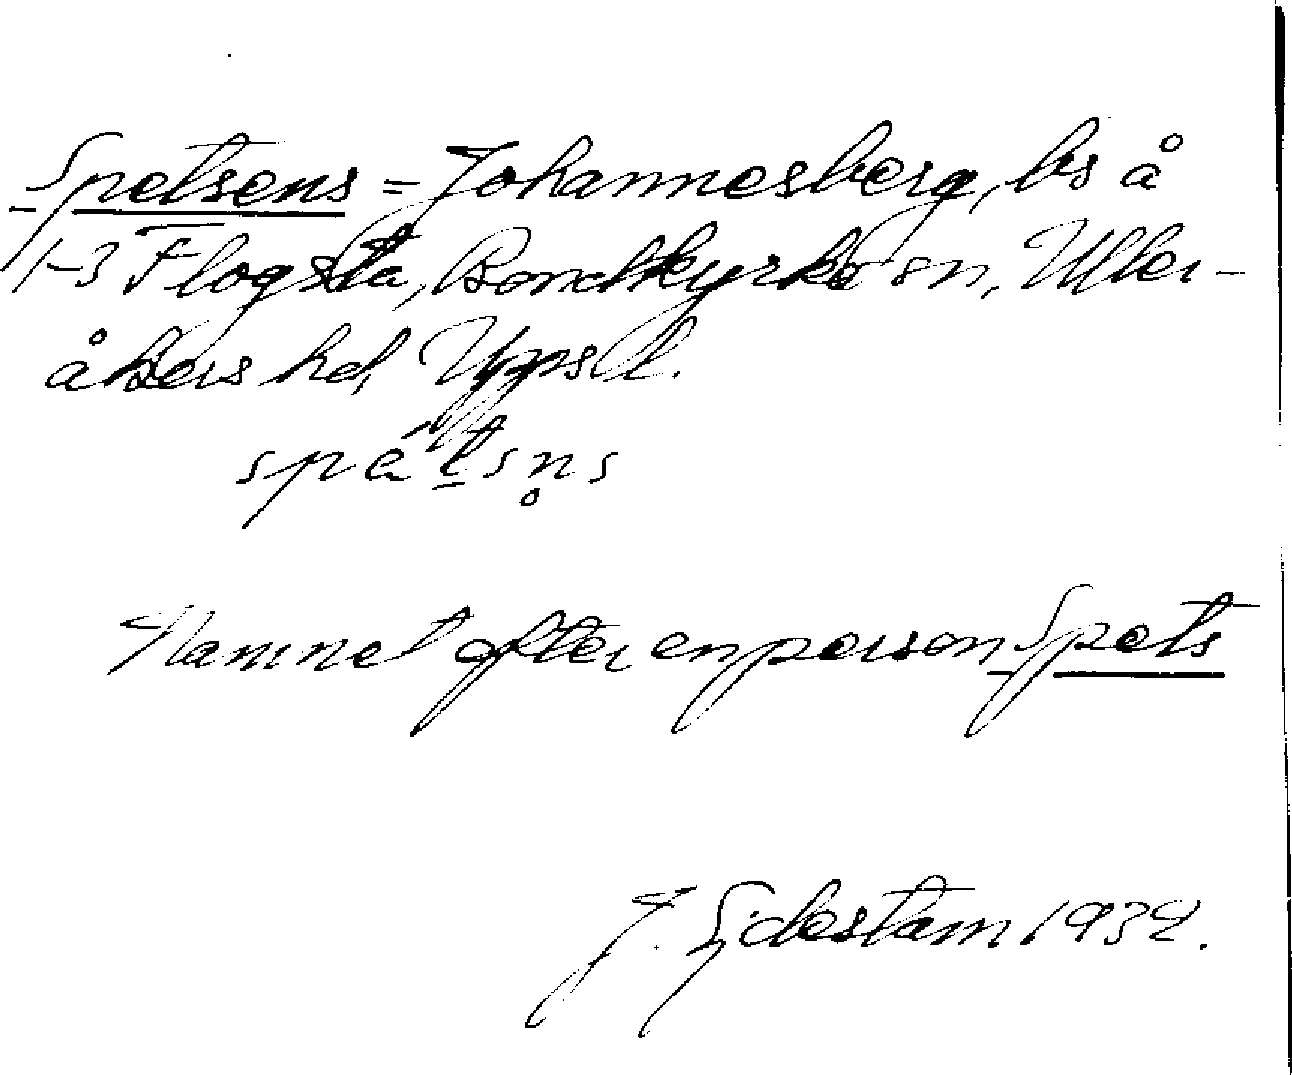 Spetsens = Johannesberg, bs å
1-3 Flogsta, Bondkyrko sn, Uller-
åkers hd, Upps. l.
spätsn̥s
Namnet efter en person Spets
J. Sjdestam 1932.